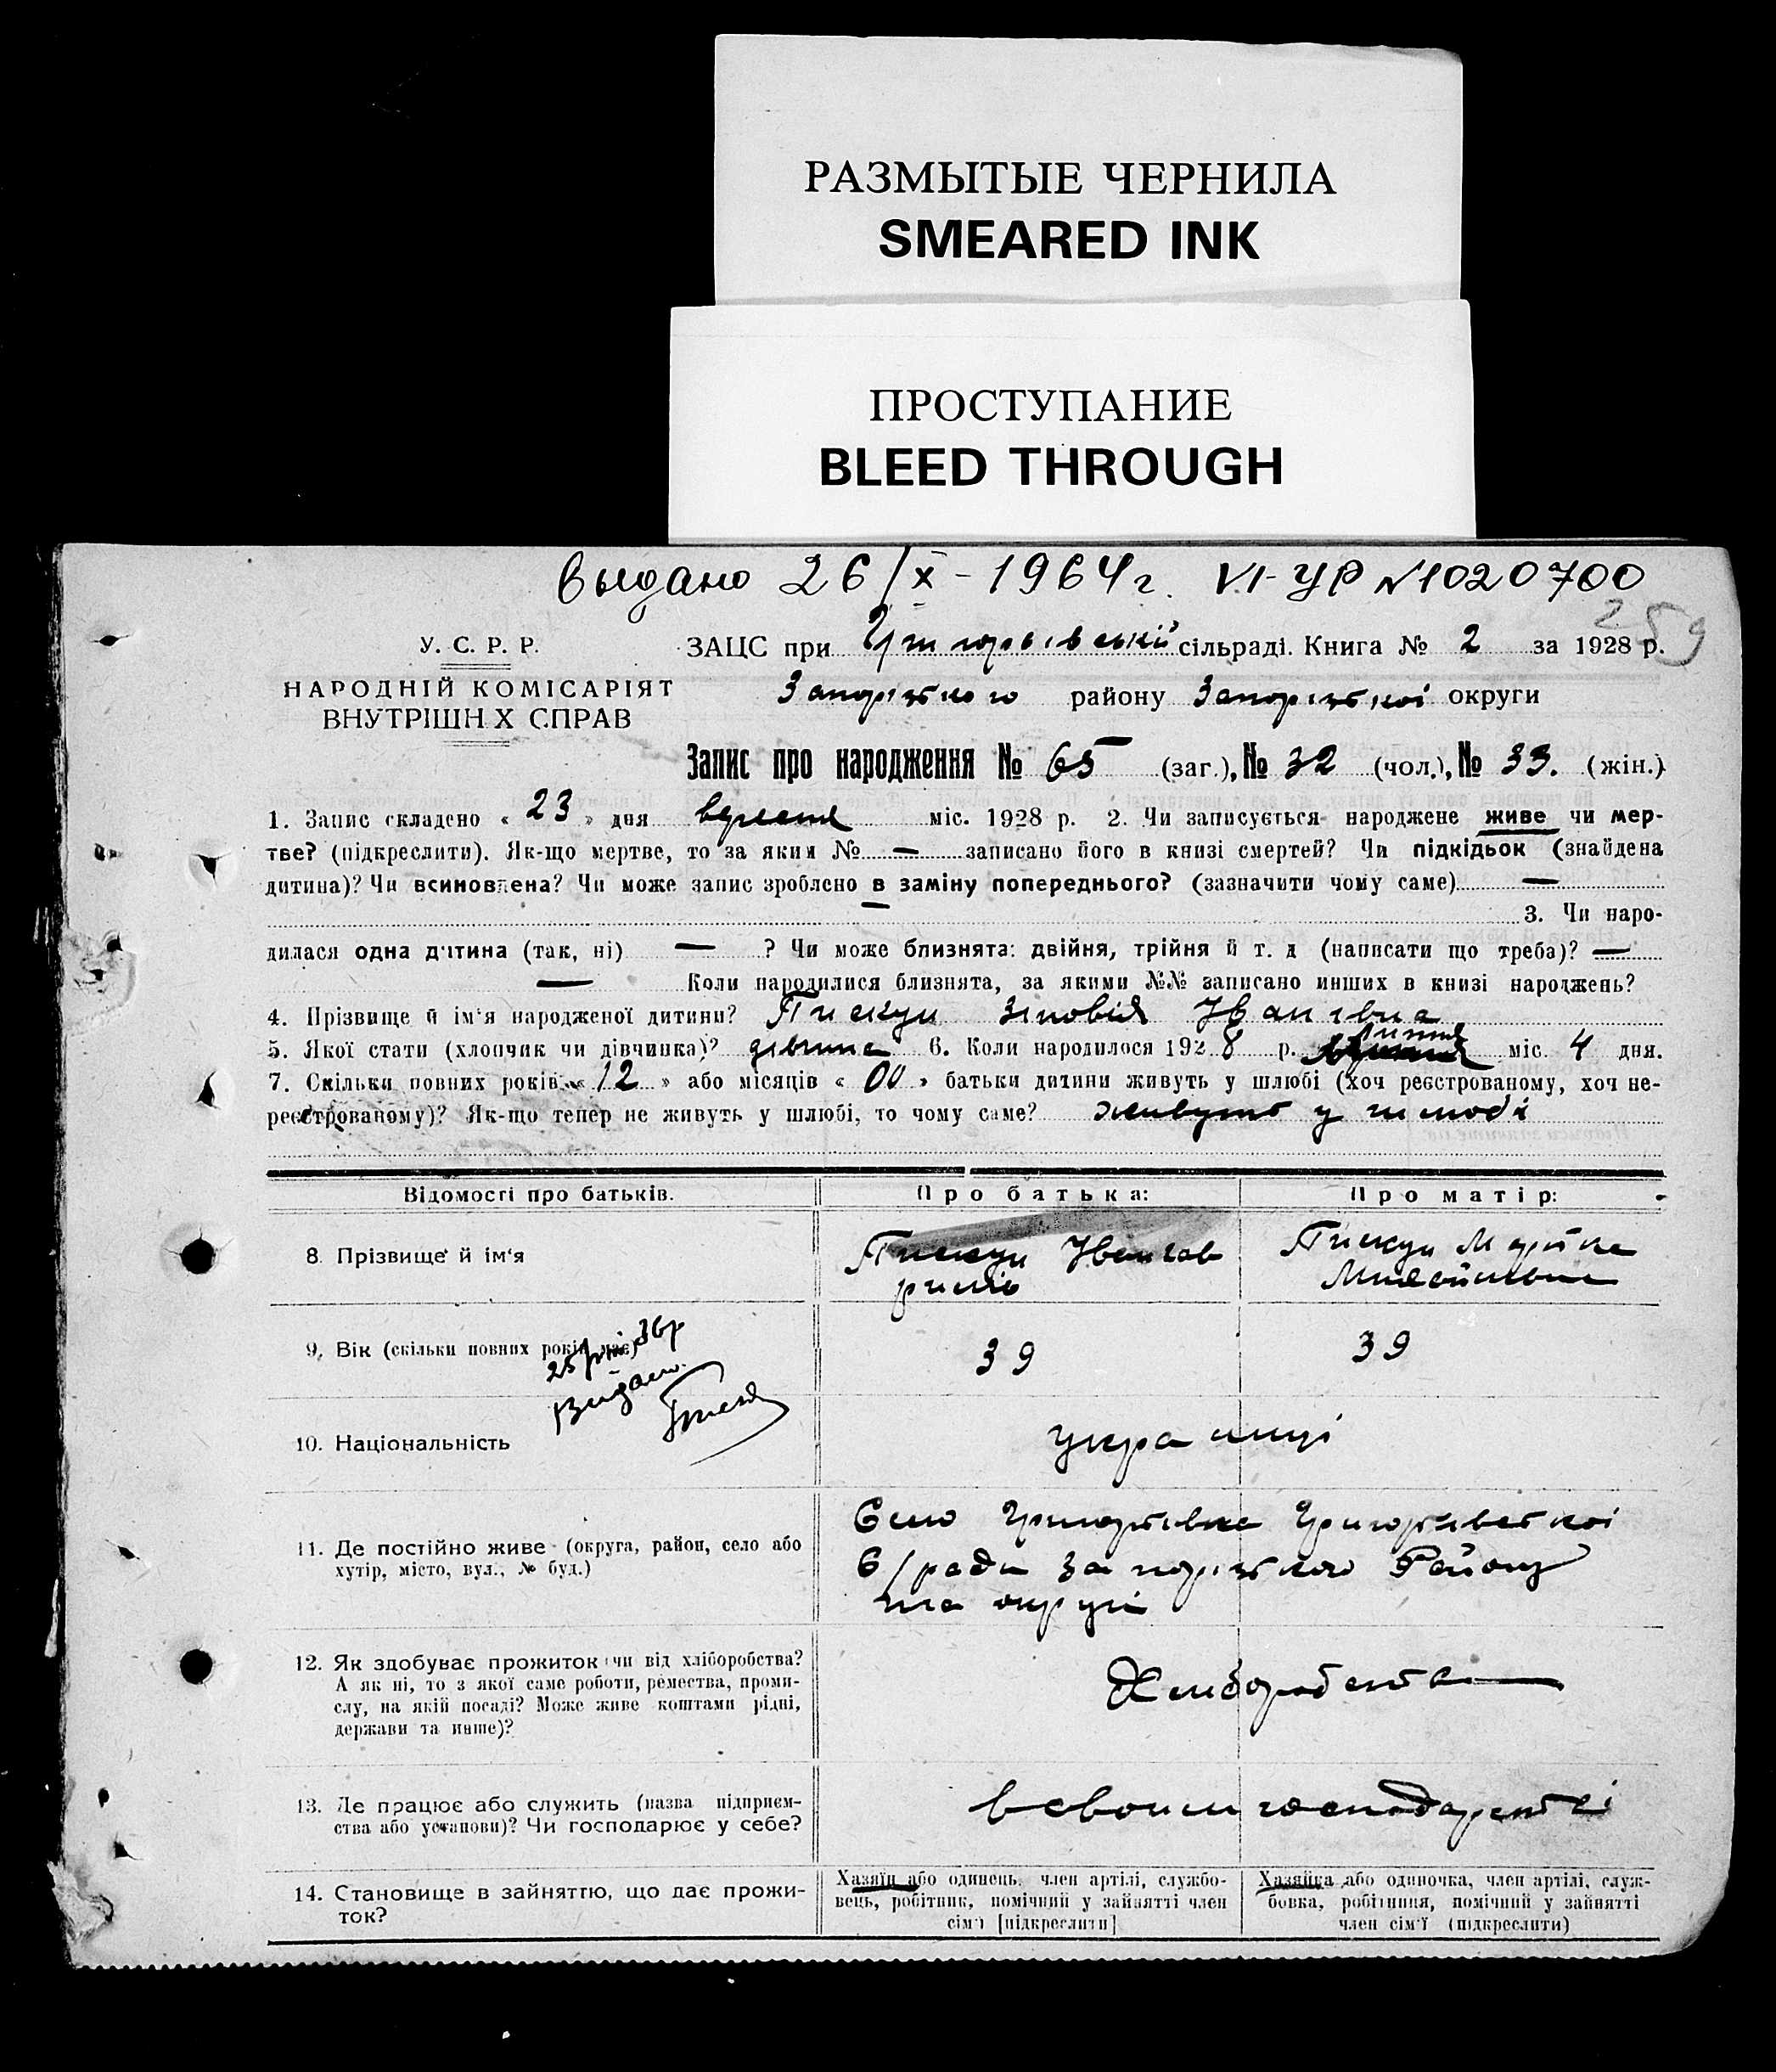 РАЗМЫТЫЕ ЧЕРНИЛА
SMEARED INK
ПРОСТУПАНИЕ
BLEED THROUGH
Выдано 26/X - 1964 г. VI-УР №1020700
259
У. С. Р. Р.
НАРОДНІЙ КОМІСАРІЯТ
ВНУТРІШН Х СПРАВ
ЗАЦС при сільраді. Книга № 2 за 1928 р.
Запорізького району Запорізької округи
Запис про народження № 65 (заг.), № 32 (чол.), № 33. (жін.)
1. Запис складено « 23 » дня вересня міс. 1928 р. 2. Чи записується народжене живе чи мер-
тве? (підкреслити). Як-що мертве, то за яким № — записано його в книзі смертей? Чи підкідьок (знайдена
дитина)? Чи всиновлена? Чи може запис зроблено в заміну попереднього? (зазначити чому саме) —
— 3. Чи наро-
дилася одна дитина (так, ні) — ? Чи може близнята: двійня, трійня й т. д (написати що треба)? —
— Коли народилися близнята, за якими №№ записано инших в книзі народжень?
4. Прізвище й ім'я народженої дитини? Пискун Зіновія Іванівна
5. Якої стати (хлопчик чи дівчинка)? дівчина 6. Коли народилося 1928 р. липня міс. 4 дня.
7. Скільки повних років « 12 » або місяців « 00 » батьки дитини живуть у шлюбі (хоч реєстрованому, хоч не-
реєстрованому)? Як-що тепер не живуть у шлюбі, то чому саме? живуть у шлюбі
Відомості про батьків.
Про батька:
Про матір:
8. Прізвище й ім'я
Пискун Іван Гав
рилів
Пискун
9. Вік (скільки повних років має)
39
39
Видано.
10. Національність
українці
11. Де постійно живе (округа, район, село або
хутір, місто, вул., № буд.)
Село Григорівка Григорівської
С/ради Запорізького Району
та округи
12. Як здобуває прожиток чи від хліборобства?
А як ні, то з якої саме роботи, ремества, проми-
слу, на якій посаді? Може живе коштами рідні,
держави та инше)?
Хліборобства
13. Де працює або служить (назва підприєм-
ства або установи)? Чи господарює у себе?
в своїм господарстві
14. Становище в зайняттю, що дає прожи-
ток?
Хазяїн або одинець, член артілі, службо-
вець, робітник, помічний у зайнятті член
сім'ї [підкреслити]
Хазяйка або одиночка, член артілі, служ-
бовка, робітниця, помічний у зайнятті
член сім'ї (підкреслити)